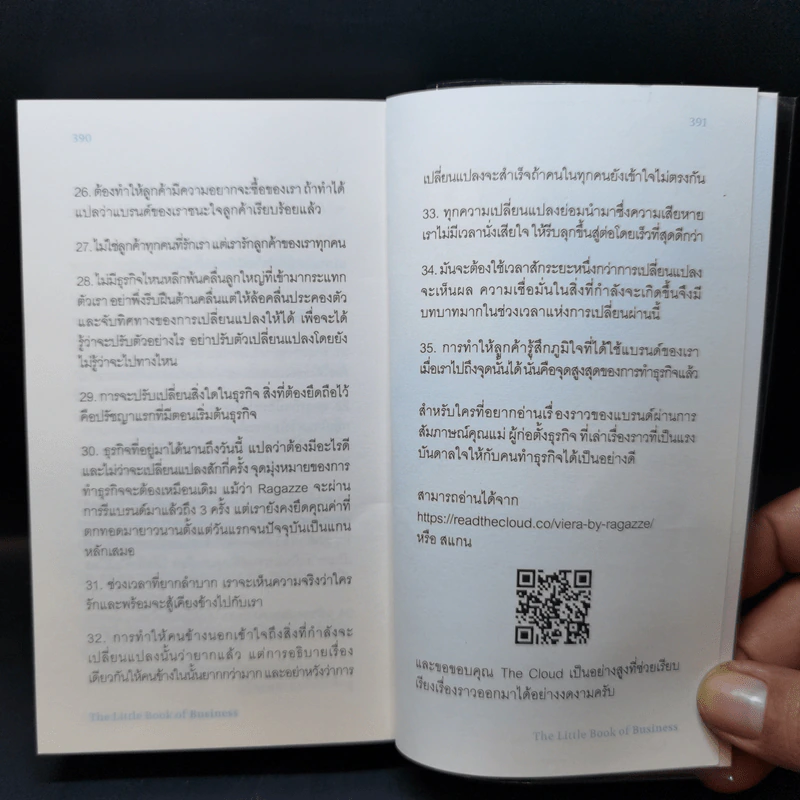 390
26. ต้องทำให้ลูกค้ามีความอยากจะซื้อของเรา ถ้าทำได้
แปลว่าแบรนด์ของเราชนะใจลูกค้าเรียบร้อยแล้ว
27. ไม่ใช่ลูกค้าทุกคนที่รักเรา แต่เรารักลูกค้าของเราทุกคน
28. ไม่มีธุรกิจไหนหลีกพ้นคลื่นลูกใหญ่ที่เข้ามากระแทก
ตัวเรา อย่าพึ่งรีบฝืนต้านคลื่นแต่ให้ล้อคลื่นประคองตัว
และจับทิศทางของการเปลี่ยนแปลงให้ได้ เพื่อจะได้
รู้ว่าจะปรับตัวอย่างไร อย่าปรับตัวเปลี่ยนแปลงโดยยัง
ไม่รู้ว่าจะไปทางไหน
29. การจะปรับเปลี่ยนสิ่งใดในธุรกิจ สิ่งที่ต้องยึดถือไว้
คือปรัชญาแรกที่มีตอนเริ่มต้นธุรกิจ
30. ธุรกิจที่อยู่มาได้นานถึงวันนี้ แปลว่าต้องมีอะไรดี
และไม่ว่าจะเปลี่ยนแปลงสักกี่ครั้ง จุดมุ่งหมายของการ
ทำธุรกิจจะต้องเหมือนเดิม แม้ว่า Ragazze จะผ่าน
การรีแบรนด์มาแล้วถึง 3 ครั้ง แต่เรายังคงยึดคุณค่าที่
ตกทอดมายาวนานตั้งแต่วันแรกจนปัจจุบันเป็นแกน
หลักเสมอ
31. ช่วงเวลาที่ยากลำบาก เราจะเห็นความจริงว่าใคร
รักและพร้อมจะสู้เคียงข้างไปกับเรา
32. การทำให้คนข้างนอกเข้าใจถึงสิ่งที่กำลังจะ
เปลี่ยนแปลงนั้นว่ายากแล้ว แต่การอธิบายเรื่อง
เดียวกันให้คนข้างในนั้นยากกว่ามาก และอย่าหวังว่าการ
The Little Book of Business
391
เปลี่ยนแปลงจะสำเร็จถ้าคนในทุกคนยังเข้าใจไม่ตรงกัน
33. ทุกความเปลี่ยนแปลงย่อมนำมาซึ่งความเสียหาย
เราไม่มีเวลานั่งเสียใจ ให้รีบลุกขึ้นสู้ต่อโดยเร็วที่สุดดีกว่า
34. มันจะต้องใช้เวลาสักระยะหนึ่งกว่าการเปลี่ยนแปลง
จะเห็นผล ความเชื่อมั่นในสิ่งที่กำลังจะเกิดขึ้นจึงมี
บทบาทมากในช่วงเวลาแห่งการเปลี่ยนผ่านนี้
35. การทำให้ลูกค้ารู้สึกภูมิใจที่ได้ใช้แบรนด์ของเรา
เมื่อเราไปถึงจุดนั้นได้ นั่นคือจุดสูงสุดของการทำธุรกิจแล้ว
สำหรับใครที่อยากอ่านเรื่องราวของแบรนด์ผ่านการ
สัมภาษณ์คุณแม่ ผู้ก่อตั้งธุรกิจ ที่เล่าเรื่องราวที่เป็นแรง
บันดาลใจให้กับคนทำธุรกิจได้เป็นอย่างดี
สามารถอ่านได้จาก
https://readthecloud.co/viera-by-ragazze/
หรือ สแกน
และขอขอบคุณ The Cloud เป็นอย่างสูงที่ช่วยเรียบ
เรียงเรื่องราวออกมาได้อย่างงดงามครับ
The Little Book of Business